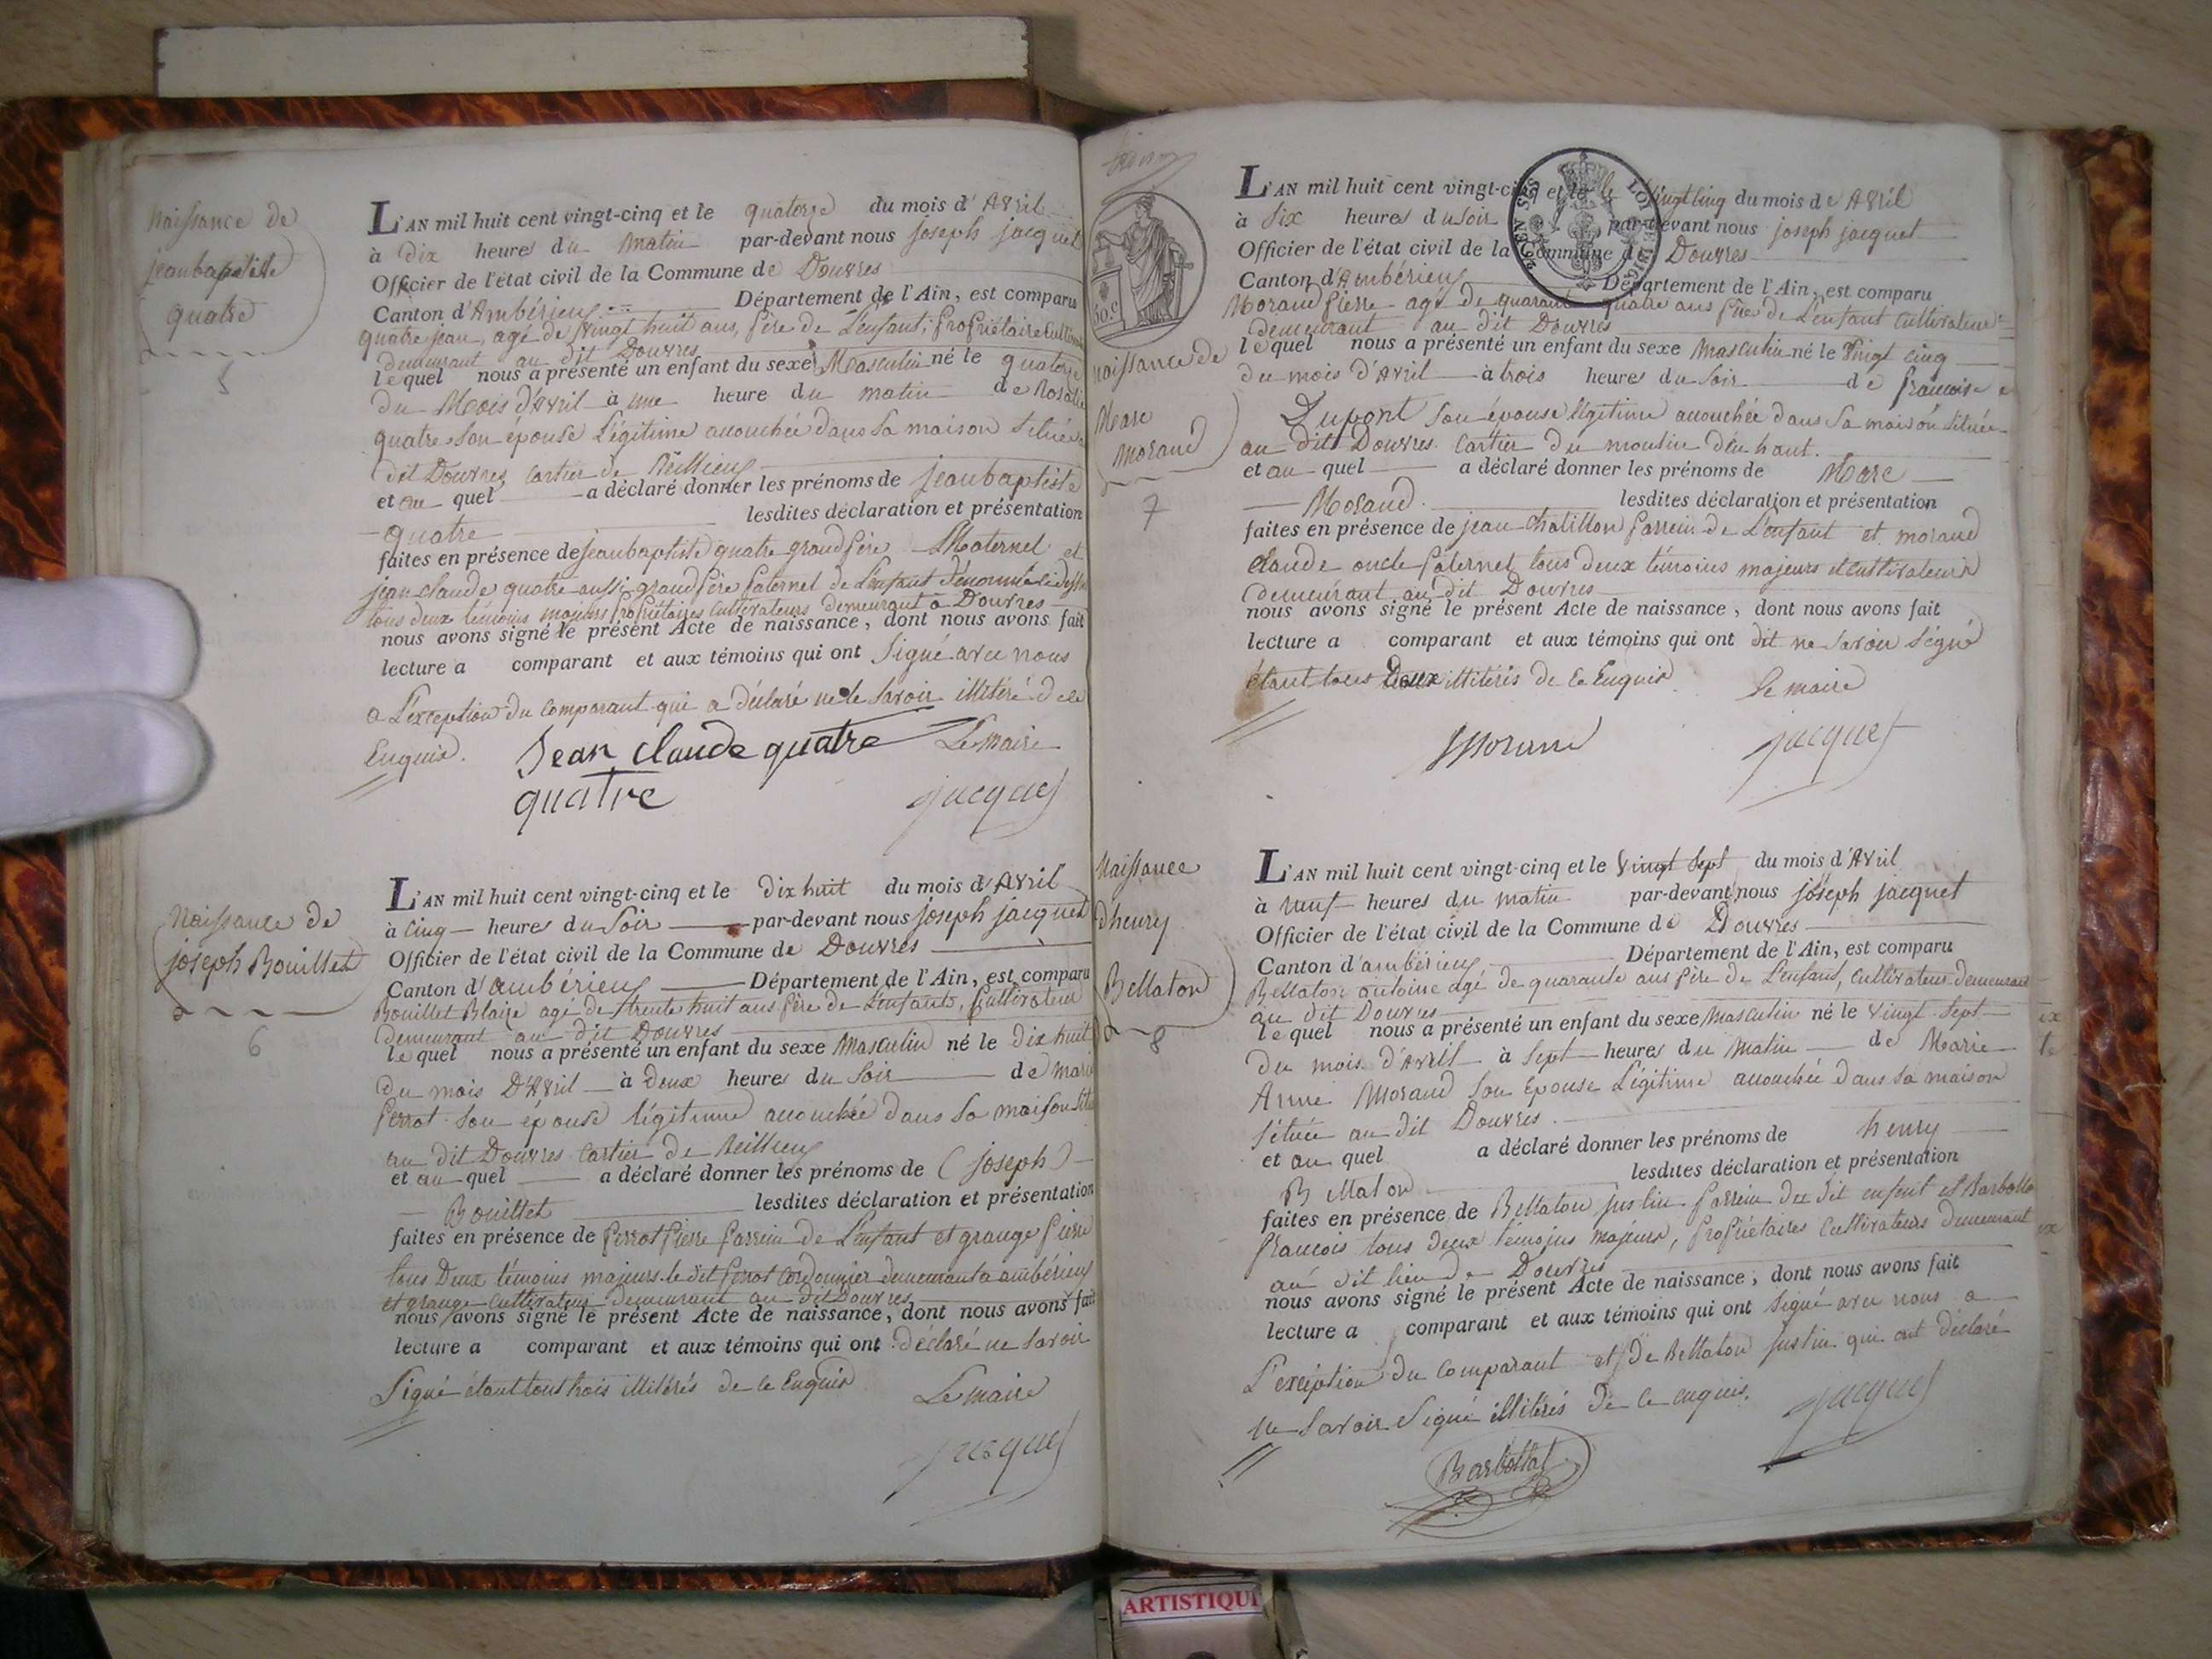 Naissance de
jeanbaptiste
quatre
5
L'AN mil huit cent vingt-cinq et le quatorze du mois d'Avril
à dix heures du Matin par-devant nous joseph jacquet
Officier de l'état civil de la Commune de Douvres
Canton d'Ambérieux Département de l'Ain, est comparu
quatre jean, agé de vingt huit ans, père de L'enfant, propriétaire
demeurant au dit Douvres
lequel nous a présenté un enfant du sexe Masculin né le quatorze
du Mois d'Avril à une heure du matin de Rosalie
quatre son épouse Légitime accouchée dans sa maison située
dit Douvres cartier de
et au quel a déclaré donner les prénoms de jeanbaptiste
quatre lesdites déclaration et présentation
faites en présence de jeanbaptiste quatre grand père Maternel et
jean claude quatre aussi grand père paternel de L'enfant dénommé ci dessus
tous deux témoins majeurs propriétaires cultivateurs demeurant à Douvres
nous avons signé le présent Acte de naissance, dont nous avons fait
lecture a comparant et aux témoins qui ont Signé avec nous
a L'exception du comparant qui a déclaré ne le savoir illitéré de ce
Enquis. Jean claude quatre Le Maire
quatre jacquet
Naissance de
joseph Bouillet
6
L'AN mil huit cent vingt-cinq et le Dix huit du mois d'Avril
à Cinq heures du Soir par-devant nous joseph jacquet
Officier de l'état civil de la Commune de Douvres
Canton d'ambérieux Département de l'Ain, est comparu
Bouillet Blaize agé de trente huit ans père de L'enfant, Cultivateur
demeurant au dit Douvres
lequel nous a présenté un enfant du sexe Masculin né le dix huit
du mois D'Avril à deux heures du Soir de marie
perrot son épouse légitime accouchée dans sa maison
au dit Douvres cartier de
et au quel a déclaré donner les prénoms de (joseph)
Bouillet lesdites déclaration et présentation
faites en présence de perrot pierre parrein de L'enfant et grange pierre
tous Deux témoins majeurs le dit perrot Cordonnier demeurant a ambérieux
et grange cultivateur demeurant au dit Douvres
nous avons signé le présent Acte de naissance, dont nous avons fait
lecture a comparant et aux témoins qui ont déclaré ne savoir
Signé étant tout trois illitérés de ce Enquis Le Maire
jacquet
30.c
LOI DE
L'AN mil huit cent vingt-cinq et le vingt cinq du mois de Avril
à Six heures du Soir par-devant nous joseph jacquet
Officier de l'état civil de la Commune de Douvres
Canton d'Ambérieux Département de l'Ain, est comparu
Morand pierre agé de quarante quatre ans père de L'enfant cultivateur
demeurant au dit Douvres
lequel nous a présenté un enfant du sexe Masculin né le Vingt cinq
naissance de
Marc
morand
7
du mois d'Avril à trois heures du Soir de francoise
Dupont son épouse légitime accouchée dans sa maison située
au dit Douvres cartier du moulin d'en haut.
et au quel a déclaré donner les prénoms de Marc
Morand. lesdites déclaration et présentation
faites en présence de jean Chatillon parrein de L'enfant et morand
claude oncle paternel tous deux témoins majeurs et cultivateurs
demeurant au dit Douvres
nous avons signé le présent Acte de naissance, dont nous avons fait
lecture a comparant et aux témoins qui ont dit ne savoir signé
étant tous Deux illitérés de ce Enquis Le maire
Morand jacquet
Naissance
dhenry
Bellaton
8
L'AN mil huit cent vingt-cinq et le Vingt Sept du mois d'Avril
à neuf heures du matin par-devant nous joseph jacquet
Officier de l'état civil de la Commune de Douvres
Canton d'ambérieux Département de l'Ain, est comparu
Bellaton antoine agé de quarante ans père de L'enfant, cultivateur demeurant
au dit Douvres
lequel nous a présenté un enfant du sexe Masculin né le Vingt Sept
du mois d'Avril à Sept heures du Matin de Marie
Anne Morand son Epouse Légitime accouchée dans sa maison
située au dit Douvres
et au quel a déclaré donner les prénoms de henry
Bellaton lesdites déclaration et présentation
faites en présence de Bellaton justin parrein du dit enfant et Barbollat
francois tous deux témoins majeurs, propriétaires cultivateurs demeurant
au dit lieu de Douvres
nous avons signé le présent Acte de naissance, dont nous avons fait
lecture a comparant et aux témoins qui ont signé avec nous a
L'exception du comparant et De Bellaton justin qui ont déclaré
ne savoir Signé illitérés de ce enquis. jacquet
Barbollat
ARTISTIQUE